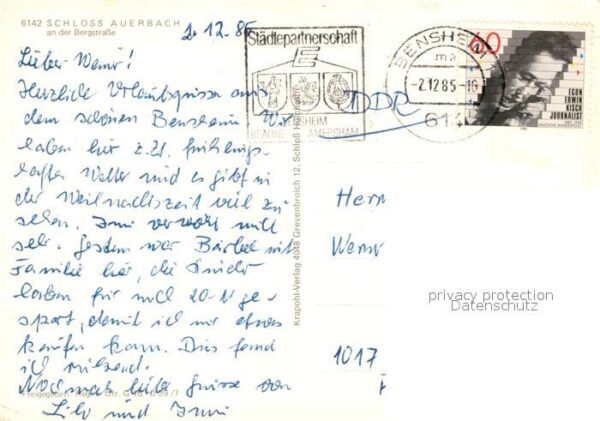 6142 SCHLOSS AUERBACH
an der Bergstraße
2.12.85
Lieber Werner!
Herzliche Urlaubsgrüsse aus
dem schönen Bensheim. Wir
haben hier z.Zt. frühlings-
haftes Wetter und es gibt in
der Weihnachtszeit viel zu
sehen. Immi verwöhnt mich
sehr. Gestern war Bärbel mit
Familie hier, die Kinder
haben für mich 20,- M ge-
spart, damit ich mir etwas
kaufen kann. Das fand
ich rührend.
Nochmals liebe Grüsse von
Lilo und Immi
Freigegeben Reg.
Krapohl-Verlag 4048 Grevenbroich 12, Schloß Hülchrath
Städtepartnerschaft
E
BEAUNE AMERSHAM
BENSHEIM
ma
-2.12.85-16
614
60
EGON
ERWIN
KISCH
JOURNALIST
DDR
Herrn
Werner
1017
privacy protection
Datenschutz